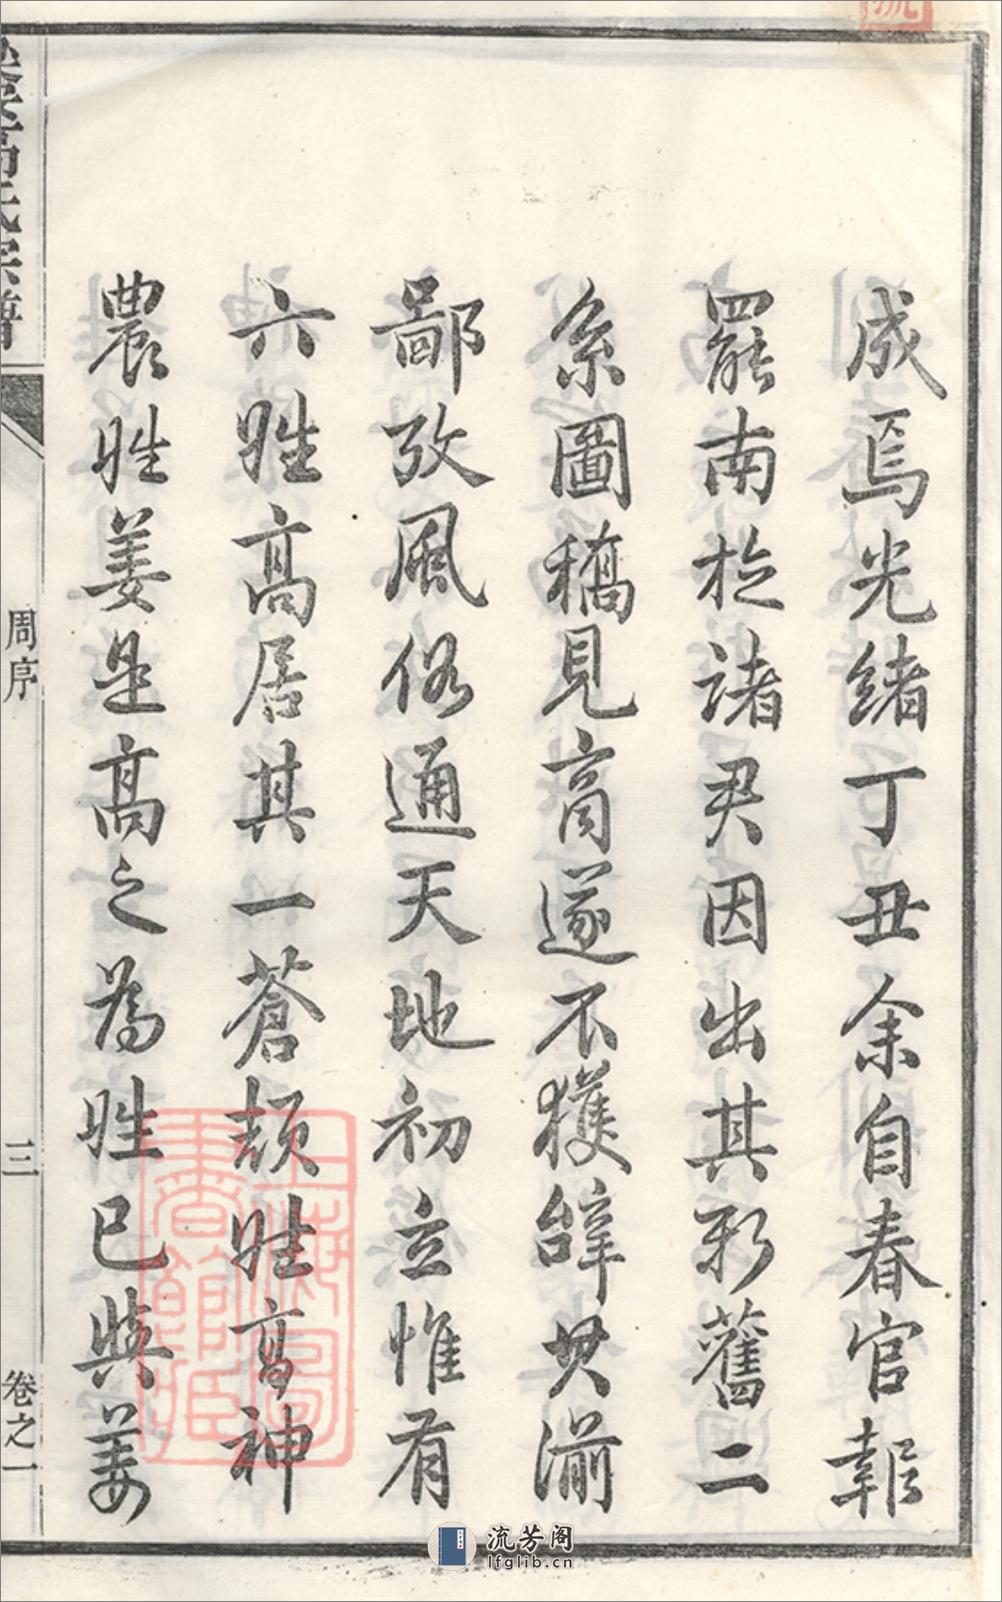 成焉光緒丁丑余自春官報
罷南旋諸君因出其新舊二
系圖稿見商遂不獲辭其湔
鄙攷風俗通天地初立惟有
六姓高居其一蒼頡姓高神
農姓姜是高之為姓已與姜
高氏宗譜
周序
三
卷之一
上海圖書館藏
流芳阁
lfglib.cn